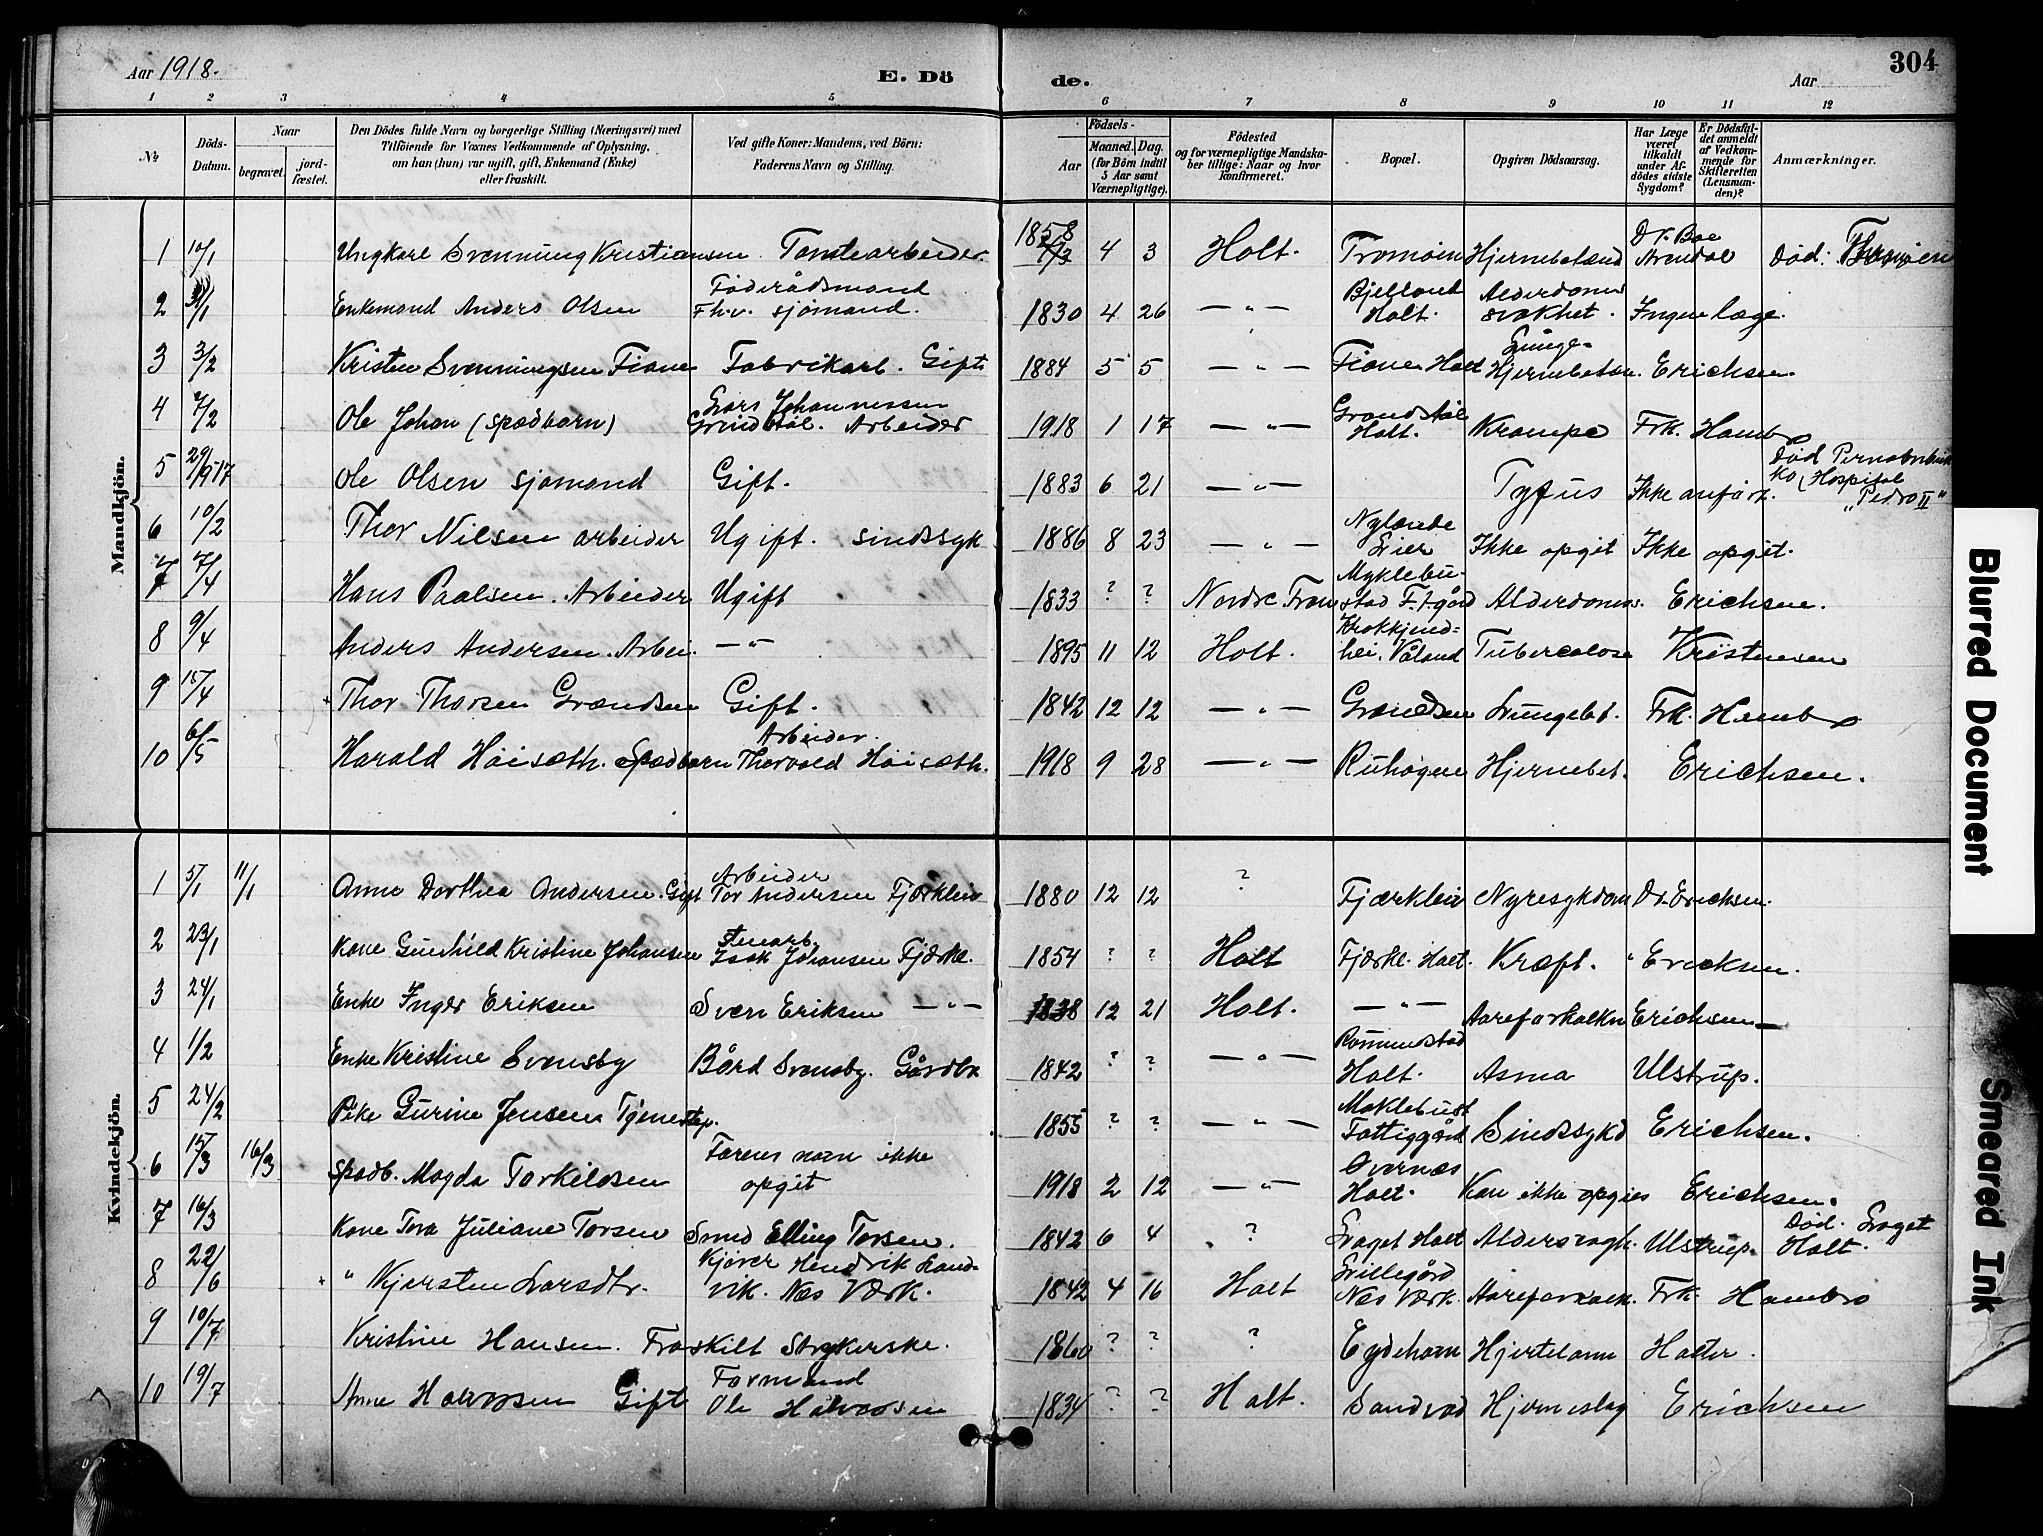 304
Aar 1918.
E. Dö
de.
Aar
1 2 3 4 5 6 7 8 9 10 11 12
No
Döds-Datum.
Naar
begravet.
jordfæstet.
Den Dödes fulde Navn og borgerlige Stilling (Næringsvei) med
Tilföiende for Voxnes Vedkommende af Oplysning,
om han (hun) var ugift, gift, Enkemand (Enke)
eller fraskilt.
Ved gifte Koner: Mandens, ved Börn:
Faderens Navn og Stilling.
Födsels-
Aar
Maaned. Dag.
(for Börn indtil
5 Aar samt
Værnepligtige).
Födested
og for værnepligtige Mandska-
ber tillige: Naar og hvor
Konfirmeret.
Bopæl.
Opgiven Dödsaarsag.
Har Læge
været
tilkaldt
under Af-
dödes sidste
Sygdom?
Er Dödsfal-
det anmeldt
af Vedkom-
mende for
Skifteretten
(Lensman-
den)?
Anmærkninger.
Mandkjön.
1 10/1 Ungkarl Svennung Kristiansen Tomtearbeider. 1858 4 3 Holt. Tromøen Hjernebetænd Dr. Boe Arendal Død: Tromøen
2 31/1 Enkemand Anders Olsen Føderådsmand Fhv. sjømand. 1830 4 26 —"— Bjelland Holt. Alderdoms svakhet. Ingen læge.
3 3/2 Kristen Svenningsen Fiane Fabrikarb. Gift 1884 5 5 —"— Fiane Holt Lunge- Hjernebetæn. Erichsen.
4 7/2 Ole Johan (spædbarn) Lars Johannessen Grindstøl. Arbeider 1918 1 17 —"— Grandstøl Holt. Krampe Frk. Hambro
5 29/9 17 Ole Olsen sjømand Gift. 1883 6 21 —"— Tyfus Ikke anført. Død Pernabubuk Hospital "Pedro II"
6 10/2 Thor Nilsen arbeider Ugift. sindssyk 1886 8 23 —"— Nylænde Lier Ikke opgit Ikke opgit.
7 7/4 Hans Paalsen. Arbeider Ugift 1833 ? ? Nordre Myklebu- stad F.t.gård Alderdoms. Erichsen.
8 9/4 Anders Andersen. Arbei. —"— 1895 11 12 Holt. hei. Våland Tuberculose Kristensen
9 15/4 Thor Thorsen Grændsen Gift. 1842 12 12 —"— Grændsen Lungebet. Frk. Hambro
10 6/5 Harald Høisæth. Spædbarn Arbeider. Thorvald Høisæth. 1918 9 28 —"— Ruhagen Hjernebet. Erichsen.
Kvindekjön.
1 5/1 11/1 Anne Dorthea Andersen. Gift Arbeider Tor Andersen Fjærkleiv 1880 12 12 ? Fjærkleiv Nyresykdom Dr. Erichsen.
2 23/1 Kone Gunhild Kristine Johansen Stenarb. Isak Johansen Fjærkl. 1854 ? ? Holt Fjærkl. Holt. Kræft. " Ericksen.
3 24/1 Enke Inger Eriksen Sven Eriksen —"— 1838 12 21 Holt. —"— Aareforkalkn Erichsen
4 1/2 Enke Kristine Svensby Bård Svensby. Gårdbr 1842 ? ? —"— Romundstad Holt. Asma Ulstrup.
5 24/2 Pike Gurine Jensen Tjenestep. 1855 ? ? —"— Moklebust Fattiggård Sindssykd Erichsen.
6 15/3 16/3 Spædb. Magda Torkildsen Farens navn ikke opgit 1918 2 12 —"— Overnæs Holt. Kan ikke opgies Erichsen.
7 16/3 Kone Tora Juliane Torsen Smed Elling Torsen. 1842 6 4 ? Laget Holt Aldersvagh. Ulstrup. Død. Laget Holt.
8 22/6 " Kjersten Larsdtr. Kjører Hendrik Land- vik. Næs Værk. 1842 4 16 Holt Lillegård Næs Værk. Aareforkalk. Frk. Hambro
9 10/7 Kristine Hansen. Fraskilt Strykerske. 1860 ? ? ? Eydehavn Hjertelam Holter.
10 19/7 Anne Halvorsen Gift Formand Ole Halvorsen 1834 ? ? Holt. Sandvad Hjerneslag Erichsen
Blurred Document
Smeared Ink